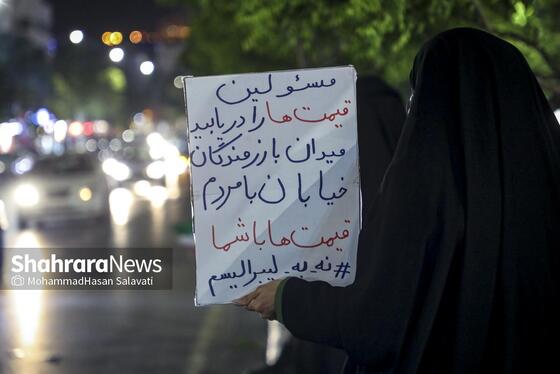 مسئولین
قیمت‌ها را دریابید
میدان با رزمندگان
خیابان با مردم
قیمت‌ها با شما
#نه_به_لیبرالیسم
ShahraraNews
MohammadHasan Salavati